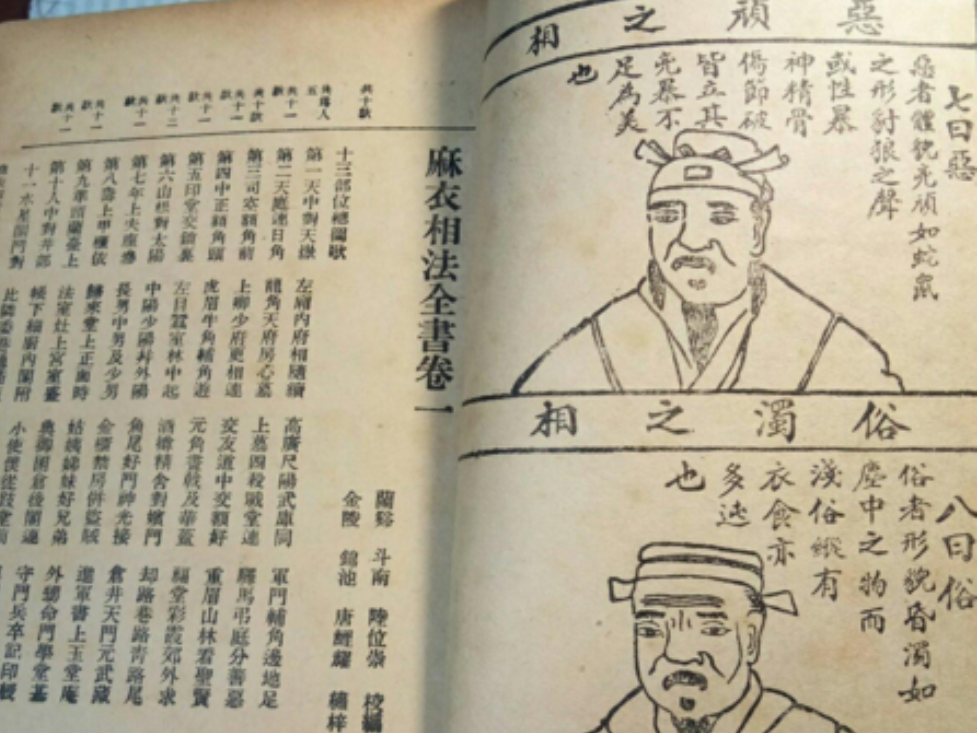 惡頑之相
七曰惡
惡者體貌兇頑如蛇鼠
之形豺狼之聲
或性暴
神精骨
傷節破
皆立其
兇暴不
足為美
也
俗濁之相
八曰俗
俗者形貌昏濁如
塵中之物而
淺俗縱有
衣食亦
多迍
也
麻衣相法全書卷一
蘭谿 斗南 陸位崇 校編
金陵 錦池 唐鯉耀 繡梓
十三部位總圖歌
第一天中對天嶽 左廂內府相隨續 高廣尺陽武庫同 軍門輔角邊地足
第二天庭連日角 龍角天府房心墓 上墓四殺戰堂連 驛馬弔庭分善惡
第三司空額角前 上卿少府更相連 交友道中交額好 重眉山林看聖賢
第四中正額角頭 虎眉牛角輔角遊 元角斧戟及華蓋 福堂彩霞郊外求
第五印堂交鎖裏 左目蠶室林中起 酒樽精舍對嬪門 却路巷路青路尾
第六山根對太陽 中陽少陽幷外陽 角尾奸門神光接 倉井天門元武藏
第七年上夫座參 長男中男及少男 金櫃禁房併盜賊 遊軍書上玉堂庵
第八壽上甲櫃依 歸來堂上正面時 姑姨姊妹好兄弟 外甥命門學堂基
第九準頭蘭臺上 法室灶上宮室盛 典御囷倉後閣連 守門兵卒記印綬
第十人中對井部 帳下細廚內閣附 小使僕從妓堂前
十一水星閣門對